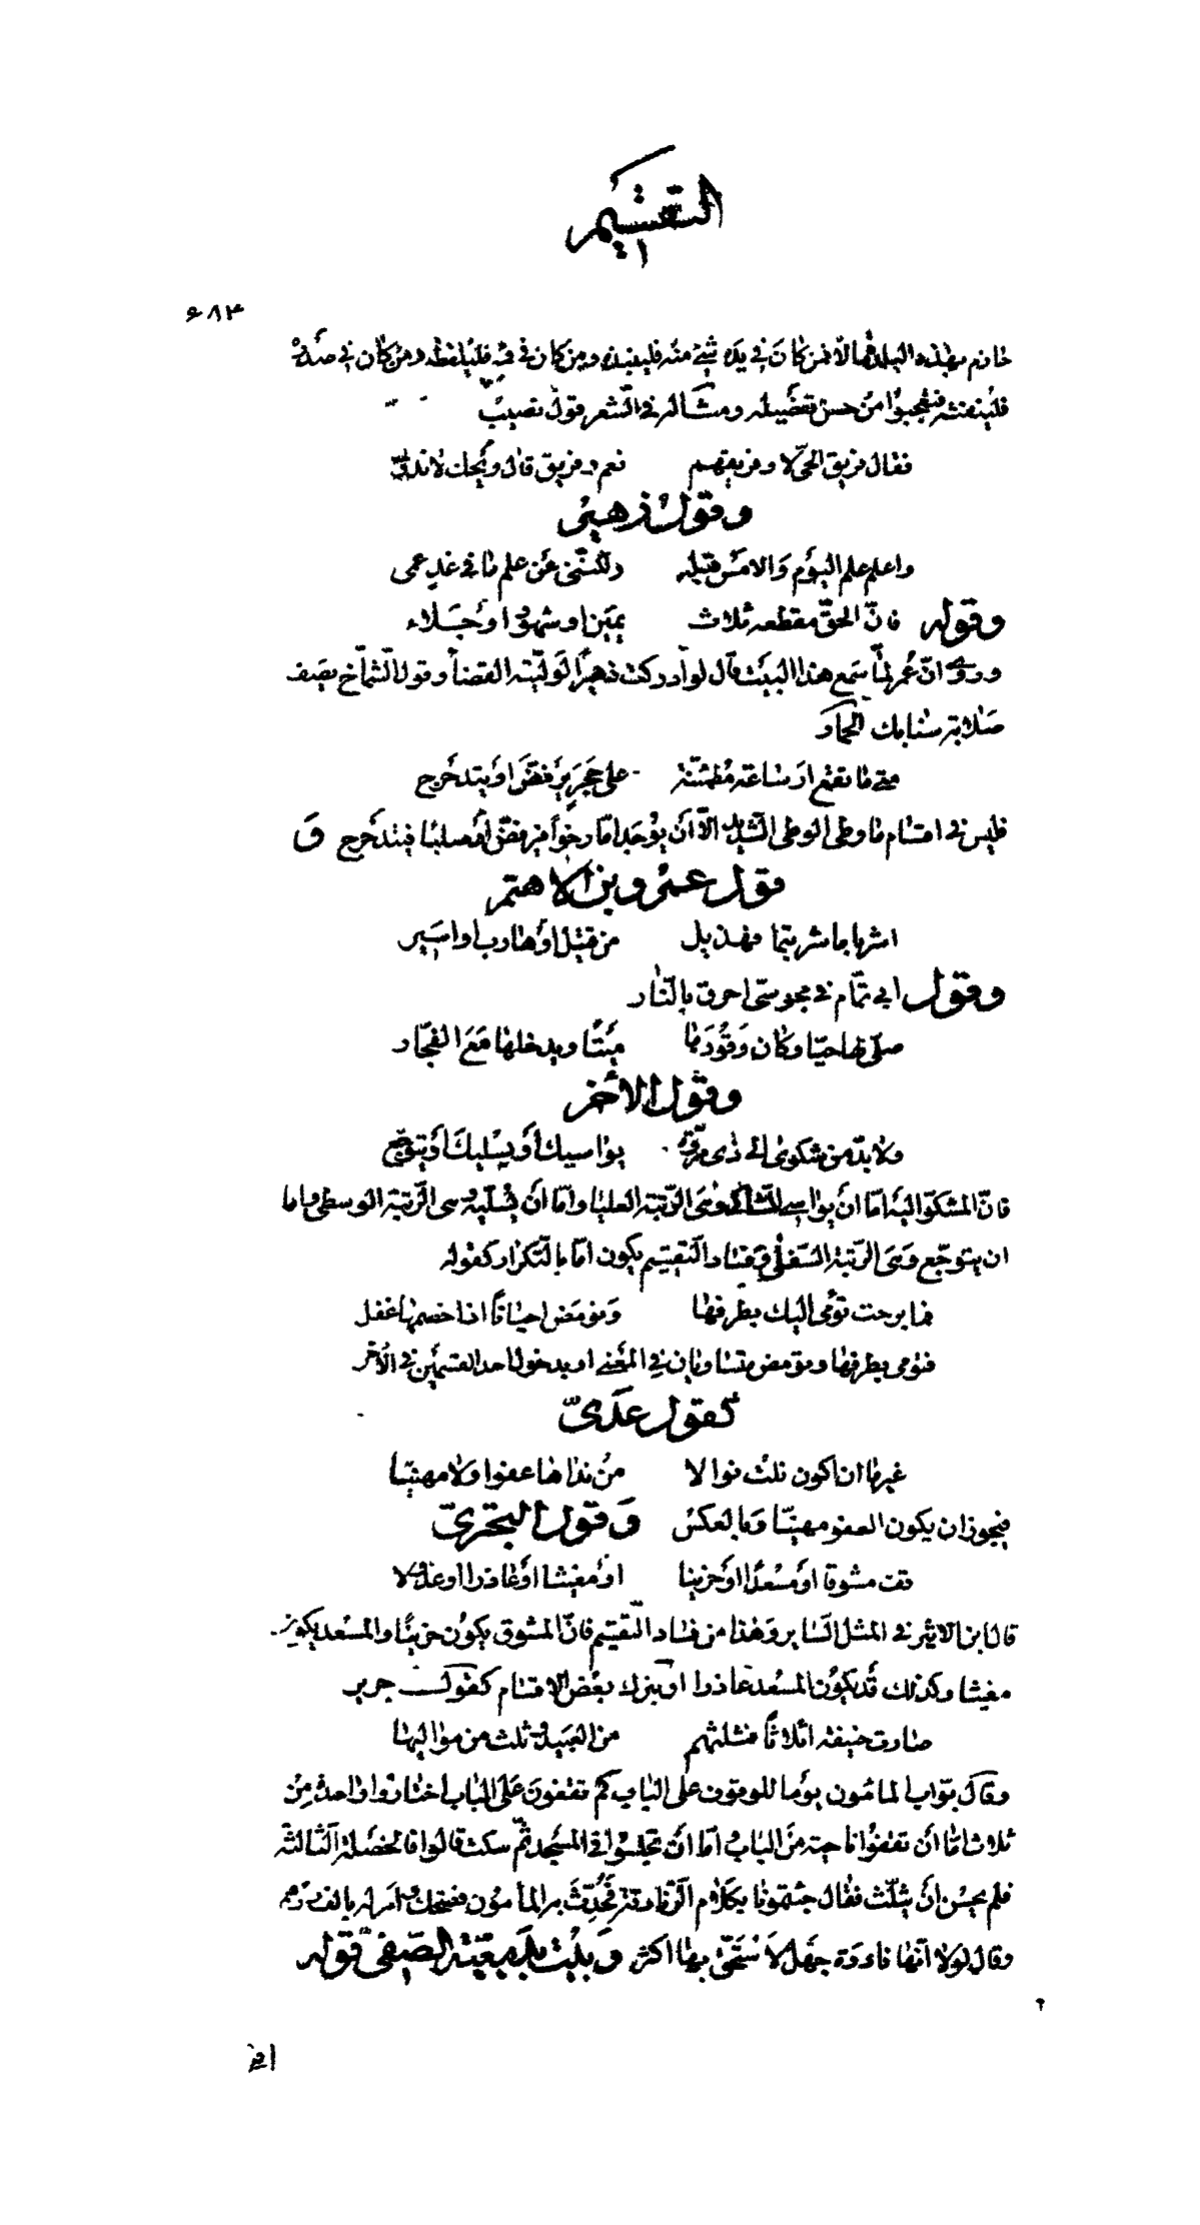 التقسيم
٦٨٣
خازم بهذه البلدة مالا فمن كان في يده شيء منه فلينبذه ومن كان في فيه فليلفظه ومن كان في صدره
فلينفثه فتعجبوا من حسن تفصيله ومثاله في الشعر قول نصيب
فقال فريق الحي لا وفريقهم نعم وفريق قال ويحك لا ندري
وقول زهير
واعلم علم اليوم والامس قبله ولكنني عن علم ما في غد عمى
وقوله فان الحق مقطعه ثلاث يمين او شهود او جلاء
وروى ان عمر لما سمع هذا البيت قال لو ادركت زهيرا لوليته القضا وقول الشماخ يصف
صلابة سنابك الحمار
متى ما تقع ارساغه مطمئنة على حجر يرفض او يتدحرج
فليس في اقسام ما وطى الوطى الشديد الا ان يوجد اما رخوا فيرفض او صلبا فيتدحرج و
قول عمرو بن الاهتم
اشربا ما شربتما فهذيل من قتيل او هارب او اسير
وقول ابي تمام في مجوسى احرق بالنار
صلى لها حيا وكان وقودها ميتا ويدخلها مع الفجار
وقول الأخر
ولا بد من شكوى الى ذى مروة يواسيك أو يسليك أو يتوجع
فان المشكو اليه اما ان يواسى الشاكى وهى الرتبة العليا واما أن يسليه وهى الرتبة الوسطى واما
ان يتوجع وهى الرتبة السفلى وفساد التقسيم يكون اما بالتكرار كقوله
فما برحت تومى اليك بطرفها وتومض احيانا اذا خصمها غفل
فتومى بطرفها وتومض متساويان في المعنى او بدخول احد القسمين في الأخر
كقول عدى
غير ما ان اكون نلت نوالا من نداها عفوا ولا مهنيا
فيجوز ان يكون العفو مهنيا وبالعكس وقول البحترى
قف مشوقا او مسعدا او حزينا او مغيثا او عاذرا او عذولا
قال ابن الاثير في المثل السائر وهذا من فساد التقسيم فان المشوق يكون حزينا والمسعد يكون
مغيثا وكذلك قد يكون المسعد عاذرا او بترك بعض الاقسام كقول جرير
صارت حنيفة اثلاثا فثلثهم من العبيد وثلث من مواليها
وقال بواب المامون يوما للوقوف على الباب كم تقفون على الباب اختاروا واحدة من
ثلاث اما أن تقفوا ناحية من الباب اما ان تجلسوا في المسجد ثم سكت قالوا فالخصلة الثالثة
فلم يحسن ان يثلث فقال جئتمونا بكلام الزنادقة فحدث به المأمون فضحك وامر له بالف درهم
وقال لولا انها نادرة جهل لاستحق بها اكثر وبيت بديعية الصفى قوله
افنى